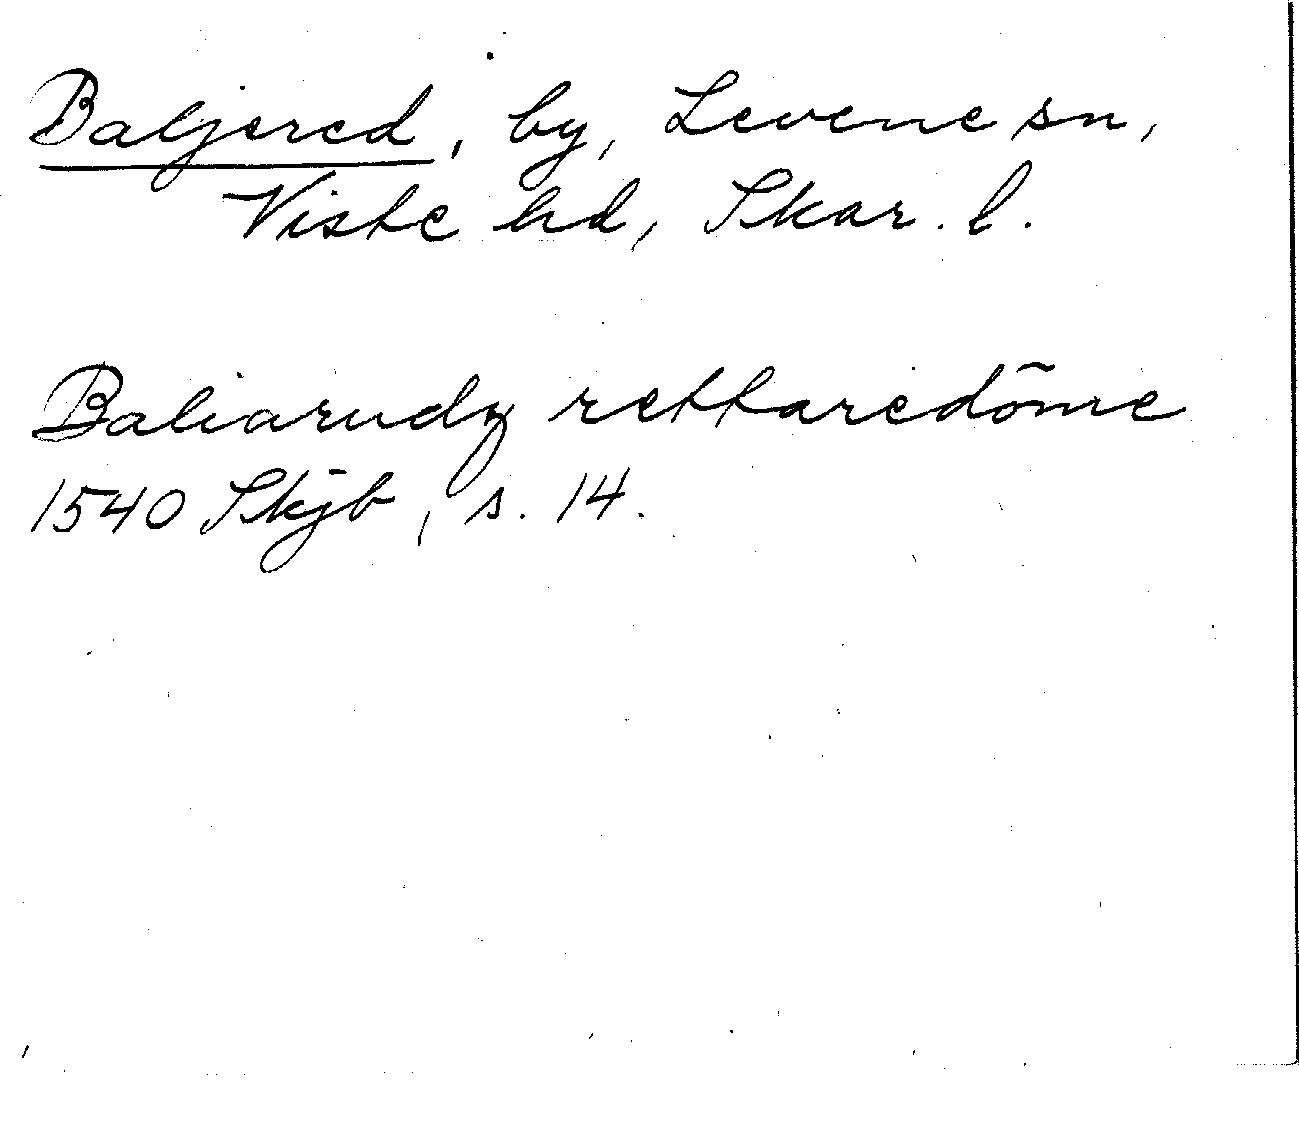 Baljered, by, Levene sn,
Viste hd, Skar. l.
Baliarudz rettaredõme
1540 Skjb, s. 14.